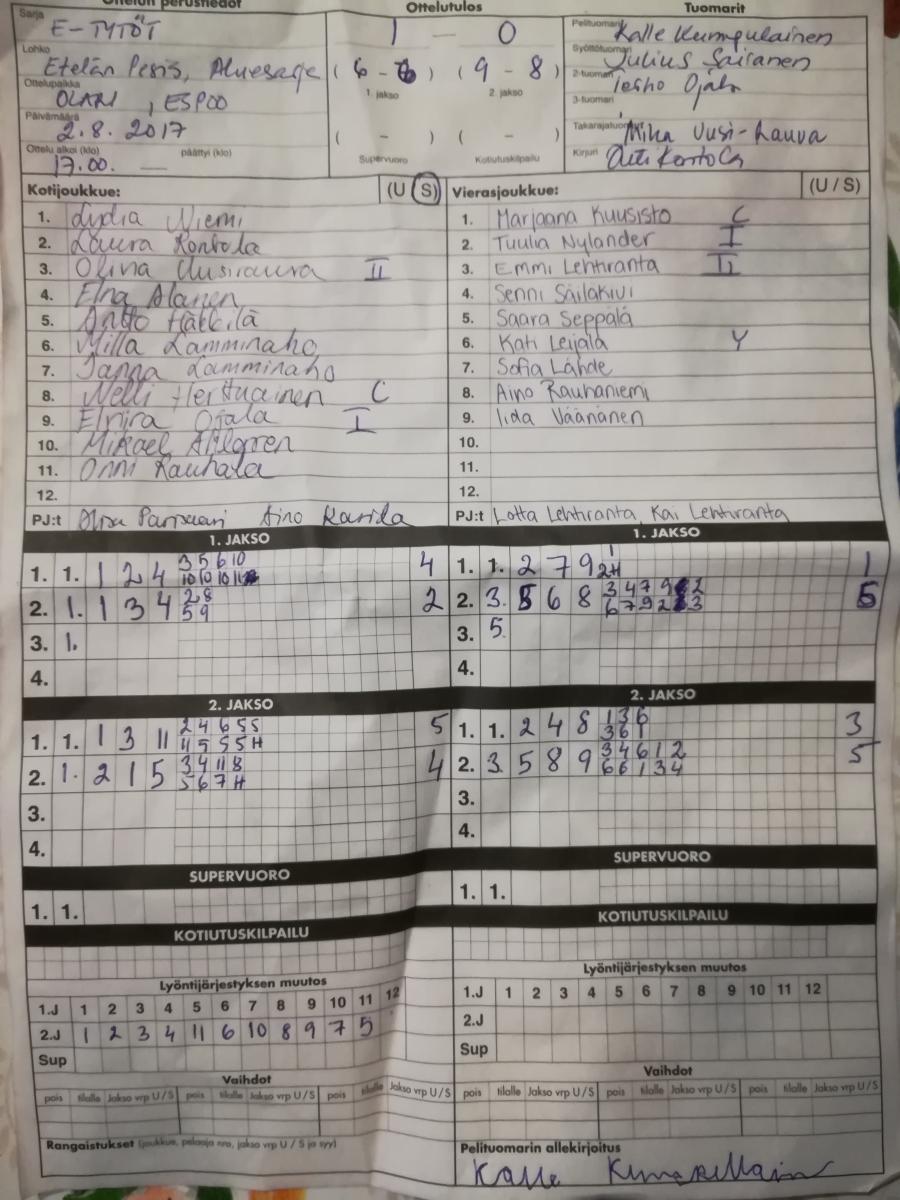 Ottelun perustiedot Ottelutulos Tuomarit
Sarja E-TYTÖT
1 — 0
Pelituomari Kalle Kumpulainen
Lohko Etelän Pesis, Aluesarja
(6 - 6) (9 - 8)
1. jakso 2. jakso
Syöttötuomari Julius Sairanen
2-tuomari
3-tuomari
Ottelupaikka OLARI, ESPOO
Päivämäärä 2.8.2017
( - ) ( - )
Supervuoro Kotiutuskilpailu
Takarajatuomarit Mika Uusi-Rauva
Ottelu alkoi (klo) 17.00. päättyi (klo)
Kirjuri
Kotijoukkue: (U / S)
1. Lydia Niemi
2. Laura Kontola
3. II
4. Elna Alanen
5. Antto
6. Milla Lamminaho
7. Janna Lamminaho
8. Nelli Herttuainen C
9. Elnira Ojala I
10. Mikael Ahlgren
11. Onni Rauhala
12.
PJ:t Aino
Vierasjoukkue: (U / S)
1. Marjaana Kuusisto C
2. Tuulia Nylander I
3. Emmi Lehtiranta II
4. Senni Säiläkivi
5. Saara Seppälä
6. Kati Leijala Y
7. Sofia Lähde
8. Aino Rauhaniemi
9. Iida Väänänen
10.
11.
12.
PJ:t Lotta Lehtiranta, Kai Lehtiranta
1. JAKSO
1. 1. 1 2 4 3 5 6 10 4
10 10 10 11
2. 1. 1 3 4 2 8 2
5 9
3. 1.
4.
1. JAKSO
1. 1. 2 7 9 1 1
2H
2. 3. 5 6 8 3 4 7 9 2 5
6 7 9 2 3
3. 5.
4.
2. JAKSO
1. 1. 1 3 11 2 4 6 5 5 5
11 5 5 5 H
2. 1. 2 1 5 3 4 11 8 4
5 6 7 H
3.
4.
2. JAKSO
1. 1. 2 4 8 1 3 6 3
3 6 1
2. 3. 5 8 9 3 4 6 1 2 5
6 6 1 3 4
3.
4.
SUPERVUORO
1. 1.
SUPERVUORO
1. 1.
KOTIUTUSKILPAILU
KOTIUTUSKILPAILU
Lyöntijärjestyksen muutos
1.J 1 2 3 4 5 6 7 8 9 10 11 12
2.J 1 2 3 4 11 6 10 8 9 7 5
Sup
Lyöntijärjestyksen muutos
1.J 1 2 3 4 5 6 7 8 9 10 11 12
2.J
Sup
Vaihdot
pois tilalle Jakso vrp U / S pois tilalle Jakso vrp U / S pois tilalle Jakso vrp U / S
Vaihdot
pois tilalle Jakso vrp U / S pois tilalle Jakso vrp U / S pois tilalle Jakso vrp U / S
Rangaistukset (joukkue, pelaaja nro, jakso vrp U / S ja syy)
Pelituomarin allekirjoitus
Kalle